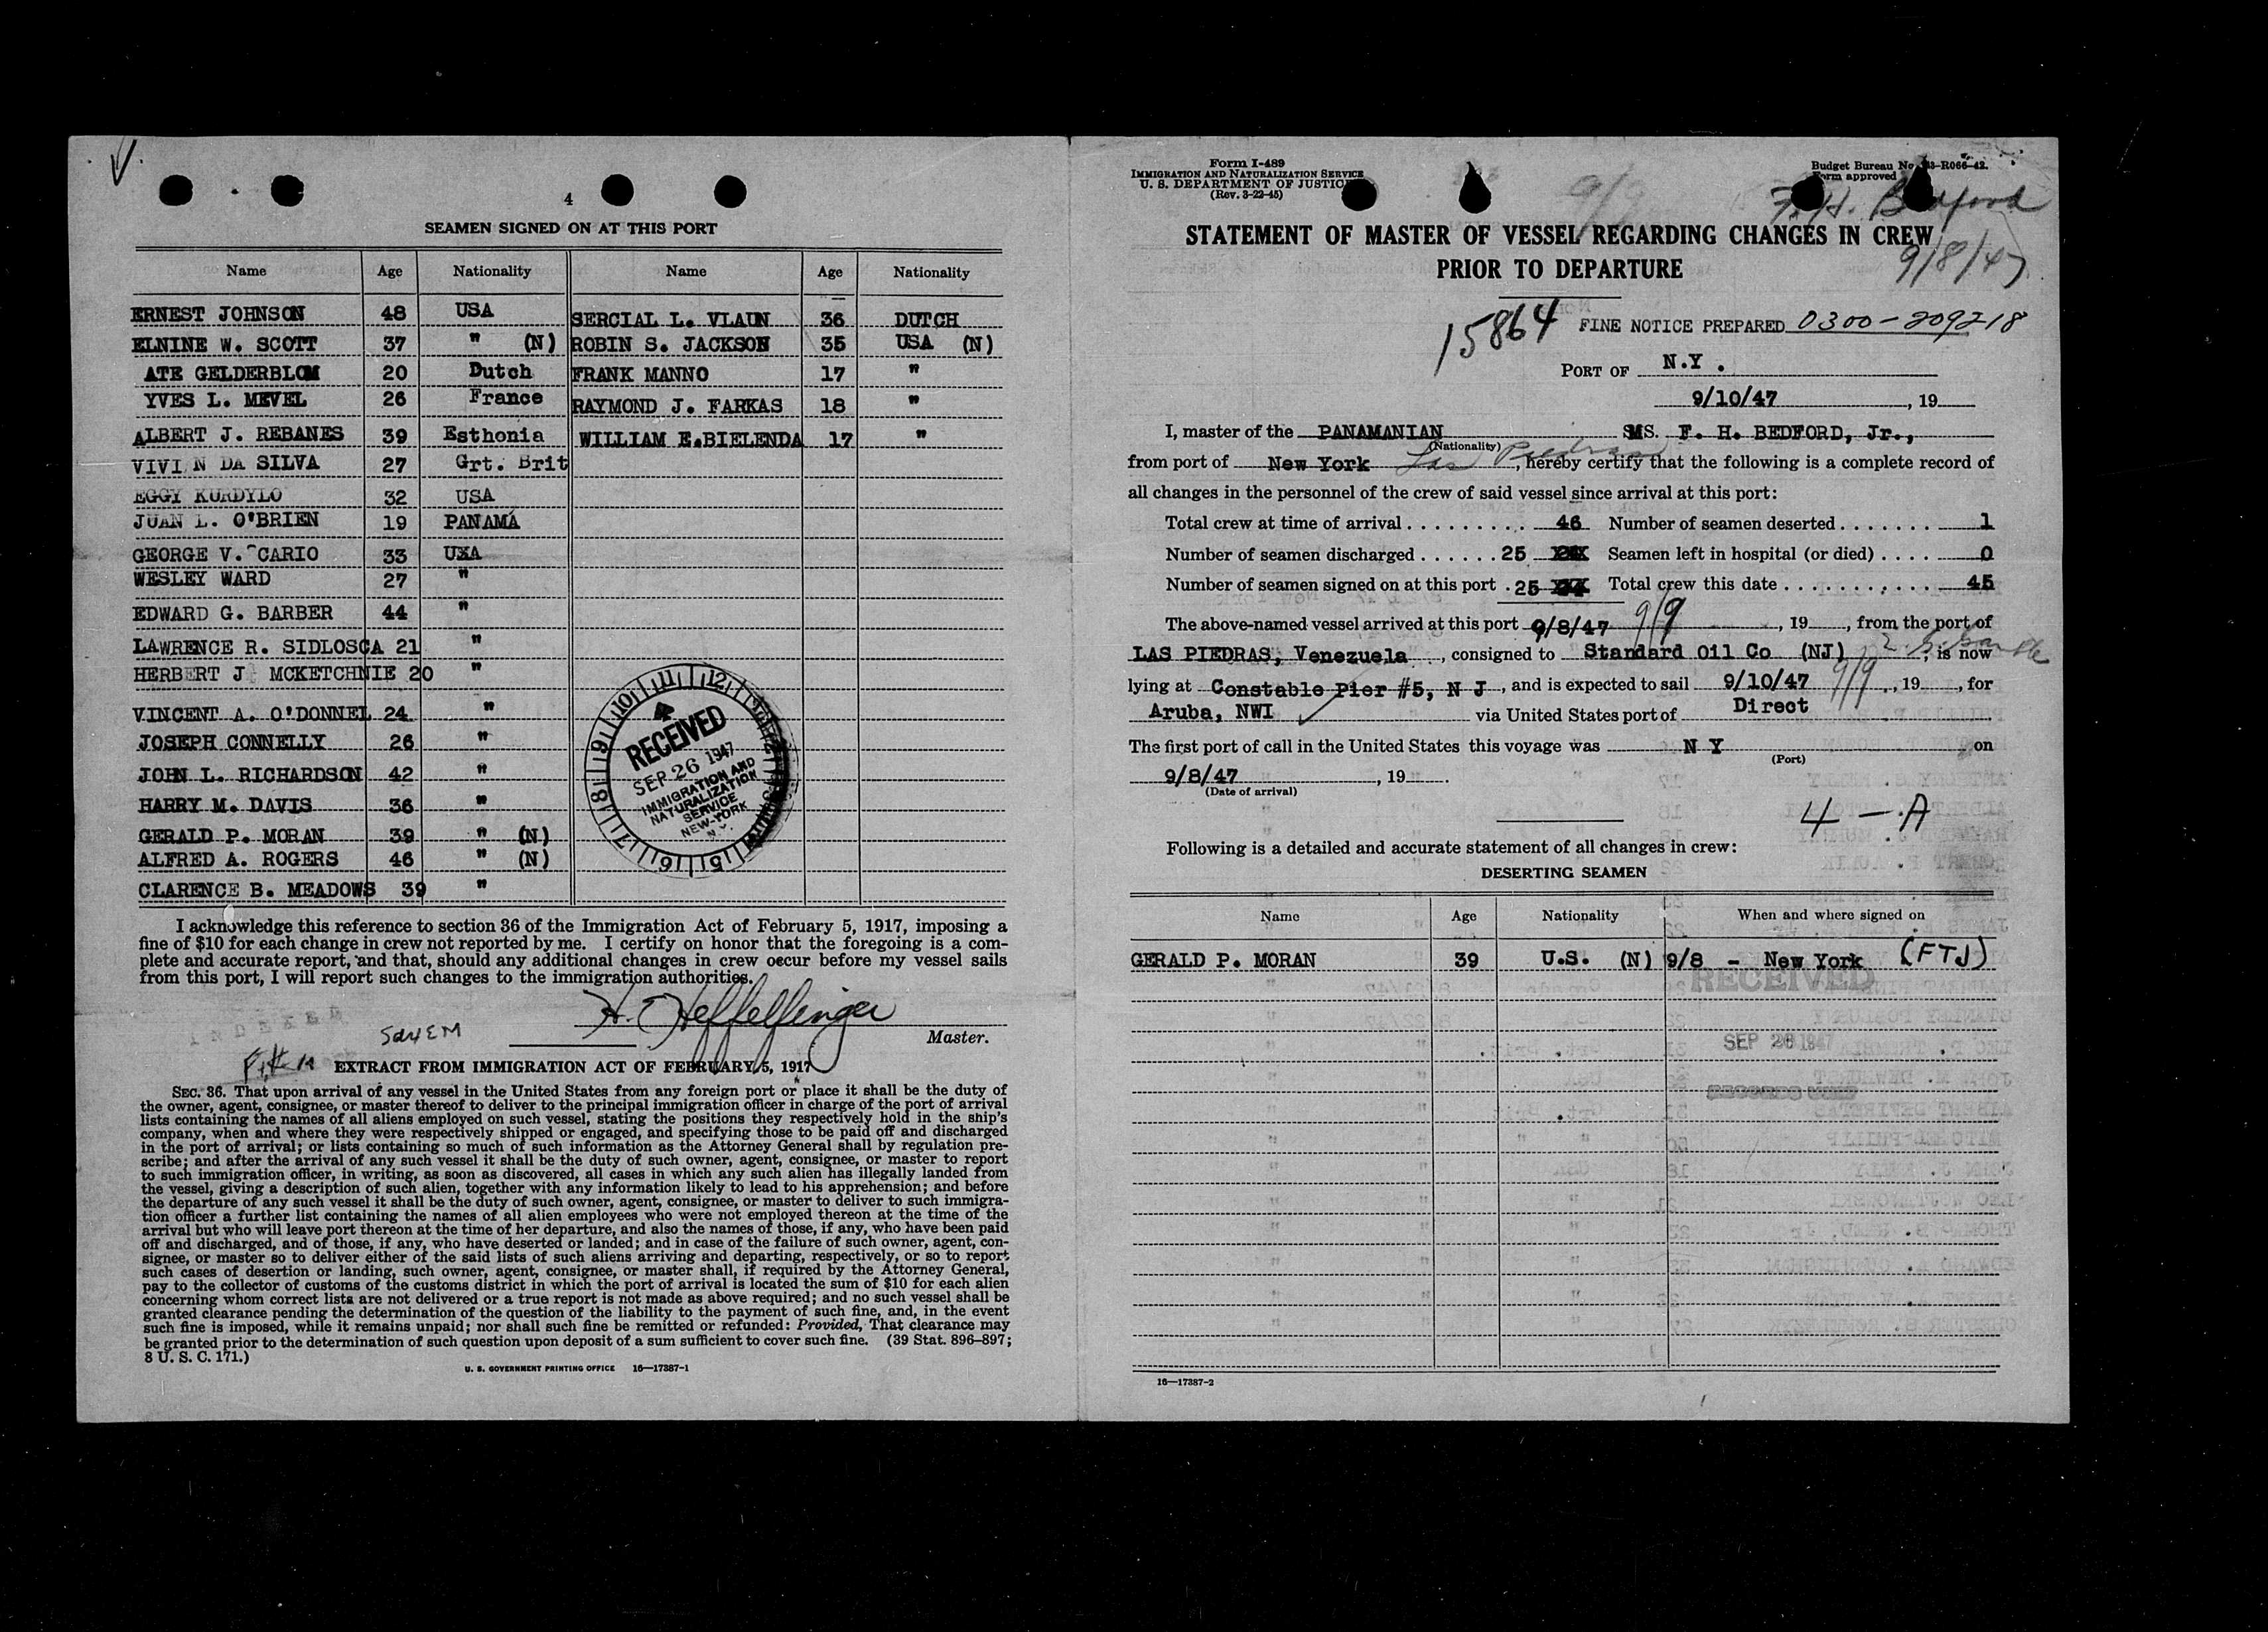 4
SEAMEN SIGNED ON AT THIS PORT
Name Age Nationality Name Age Nationality
ERNEST JOHNSON 48 USA SERCIAL L. VLAUN 36 DUTCH
ELNINE W. SCOTT 37 " (N) ROBIN S. JACKSON 35 USA (N)
ATE GELDERBLOM 20 Dutch FRANK MANNO 17 "
YVES L. MEVEL 26 France RAYMOND J. FARKAS 18 "
ALBERT J. REBANES 39 Esthonia WILLIAM E.BIELENDA 17 "
VIVI N DA SILVA 27 Grt. Brit
EGGY KURDYLO 32 USA
JUAN L. O'BRIEN 19 PANAMA
GEORGE V. CARIO 33 UXA
WESLEY WARD 27 "
EDWARD G. BARBER 44 "
LAWRENCE R. SIDLOSCA 21 "
HERBERT J MCKETCHNIE 20 "
VINCENT A. O'DONNEL 24 "
JOSEPH CONNELLY 26 "
JOHN L. RICHARDSON 42 "
HARRY M. DAVIS 36 "
GERALD P. MORAN 39 " (N)
ALFRED A. ROGERS 46 " (N)
CLARENCE B. MEADOWS 39 "
RECEIVED
SEP 26 1947
IMMIGRATION AND
NATURALIZATION
SERVICE
NEW-YORK
N.Y.
I acknowledge this reference to section 36 of the Immigration Act of February 5, 1917, imposing a
fine of $10 for each change in crew not reported by me. I certify on honor that the foregoing is a com-
plete and accurate report, and that, should any additional changes in crew occur before my vessel sails
from this port, I will report such changes to the immigration authorities.
H. Heffelfinger
Master.
EXTRACT FROM IMMIGRATION ACT OF FEBRUARY 5, 1917
SEC. 36. That upon arrival of any vessel in the United States from any foreign port or place it shall be the duty of
the owner, agent, consignee, or master thereof to deliver to the principal immigration officer in charge of the port of arrival
lists containing the names of all aliens employed on such vessel, stating the positions they respectively hold in the ship's
company, when and where they were respectively shipped or engaged, and specifying those to be paid off and discharged
in the port of arrival; or lists containing so much of such information as the Attorney General shall by regulation pre-
scribe; and after the arrival of any such vessel it shall be the duty of such owner, agent, consignee, or master to report
to such immigration officer, in writing, as soon as discovered, all cases in which any such alien has illegally landed from
the vessel, giving a description of such alien, together with any information likely to lead to his apprehension; and before
the departure of any such vessel it shall be the duty of such owner, agent, consignee, or master to deliver to such immigra-
tion officer a further list containing the names of all alien employees who were not employed thereon at the time of the
arrival but who will leave port thereon at the time of her departure, and also the names of those, if any, who have been paid
off and discharged, and of those, if any, who have deserted or landed; and in case of the failure of such owner, agent, con-
signee, or master so to deliver either of the said lists of such aliens arriving and departing, respectively, or so to report
such cases of desertion or landing, such owner, agent, consignee, or master shall, if required by the Attorney General,
pay to the collector of customs of the customs district in which the port of arrival is located the sum of $10 for each alien
concerning whom correct lists are not delivered or a true report is not made as above required; and no such vessel shall be
granted clearance pending the determination of the question of the liability to the payment of such fine, and, in the event
such fine is imposed, while it remains unpaid; nor shall such fine be remitted or refunded: Provided, That clearance may
be granted prior to the determination of such question upon deposit of a sum sufficient to cover such fine. (39 Stat. 896–897;
8 U. S. C. 171.)
U. S. GOVERNMENT PRINTING OFFICE 16—17387-1
Form I-489
IMMIGRATION AND NATURALIZATION SERVICE
U. S. DEPARTMENT OF JUSTICE
(Rev. 3-22-45)
Budget Bureau No. 43-R066-42.
Form approved
F. H. Bedford
9/8/47
STATEMENT OF MASTER OF VESSEL REGARDING CHANGES IN CREW
PRIOR TO DEPARTURE
15864 FINE NOTICE PREPARED 0300-209218
PORT OF N.Y.
9/10/47, 19
I, master of the PANAMANIAN MS. F. H. BEDFORD, Jr.,
(Nationality)
from port of New York Las Piedras, hereby certify that the following is a complete record of
all changes in the personnel of the crew of said vessel since arrival at this port:
Total crew at time of arrival 46 Number of seamen deserted 1
Number of seamen discharged 25 Seamen left in hospital (or died) 0
Number of seamen signed on at this port 25 Total crew this date 45
The above-named vessel arrived at this port 9/8/47 9/9, 19, from the port of
LAS PIEDRAS, Venezuela, consigned to Standard Oil Co (NJ), is now
lying at Constable Pier #5, N J, and is expected to sail 9/10/47 9/9, 19, for
Aruba, NWI via United States port of Direct
The first port of call in the United States this voyage was N Y on
(Port)
9/8/47, 19.
(Date of arrival)
4 - A
Following is a detailed and accurate statement of all changes in crew:
DESERTING SEAMEN
Name Age Nationality When and where signed on
GERALD P. MORAN 39 U.S. (N) 9/8 - New York (FTJ)
RECEIVED
SEP 26 1947
16—17387-2